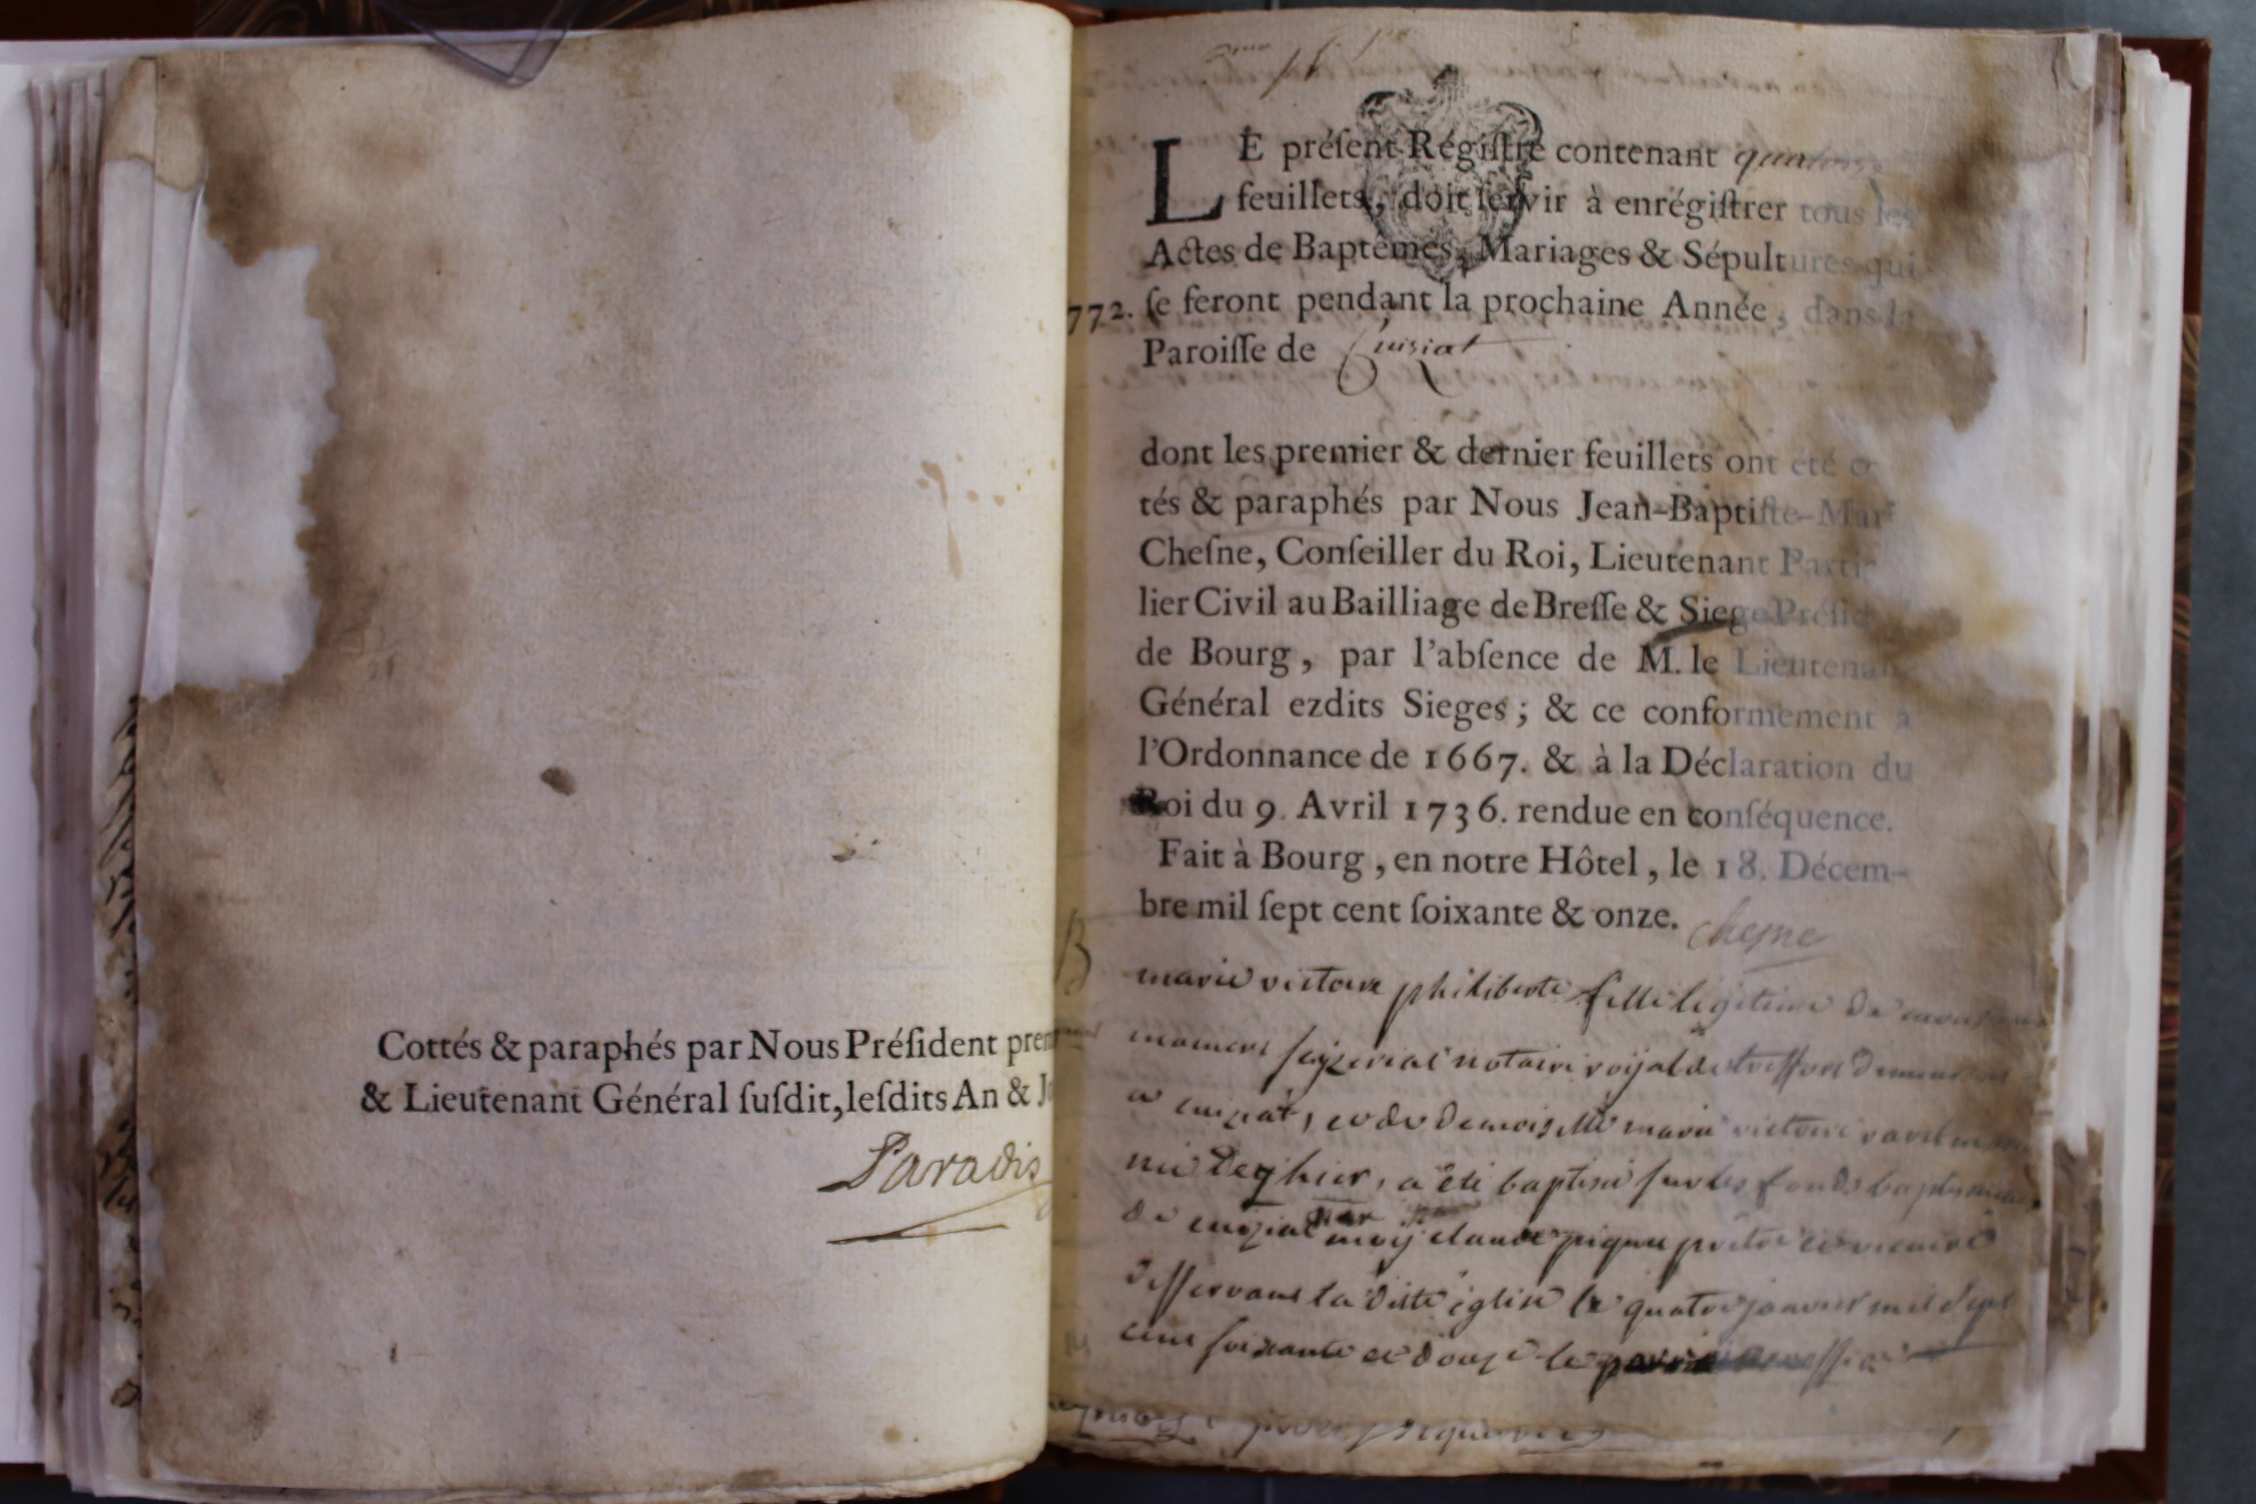 Cottés & paraphés par Nous Préſident prem
& Lieutenant Général ſuſdit, leſdits An & J
Paradis
LE préſent Régiſtre contenant quatorze
feuillets, doit ſervir à enrégiſtrer tous les
Actes de Baptêmes, Mariages & Sépultures qui
772. ſe feront pendant la prochaine Année, dans la
Paroiſſe de Cuisiat
dont les premier & dernier feuillets ont été co
tés & paraphés par Nous Jean-Baptiſte-Mari
Cheſne, Conſeiller du Roi, Lieutenant Partic
lier Civil au Bailliage de Breſſe & Siege Préſid
de Bourg, par l'abſence de M. le Lieutenant
Général ezdits Sieges; & ce conformement à
l'Ordonnance de 1667. & à la Déclaration du
Roi du 9. Avril 1736. rendue en conſéquence.
Fait à Bourg, en notre Hôtel, le 18. Décem-
bre mil ſept cent ſoixante & onze. chesne
B
marie victoire philiberte fille legitime de
notaire royal de treffort demeurant
a cuiziat, et de demoiselle marie victoire
a été baptisé sur les fonds baptismaux
de cuiziat par moy claude prêtre et vicaire
desservant la ditte église le quatre janvier mil sept
cent soixante et douze le